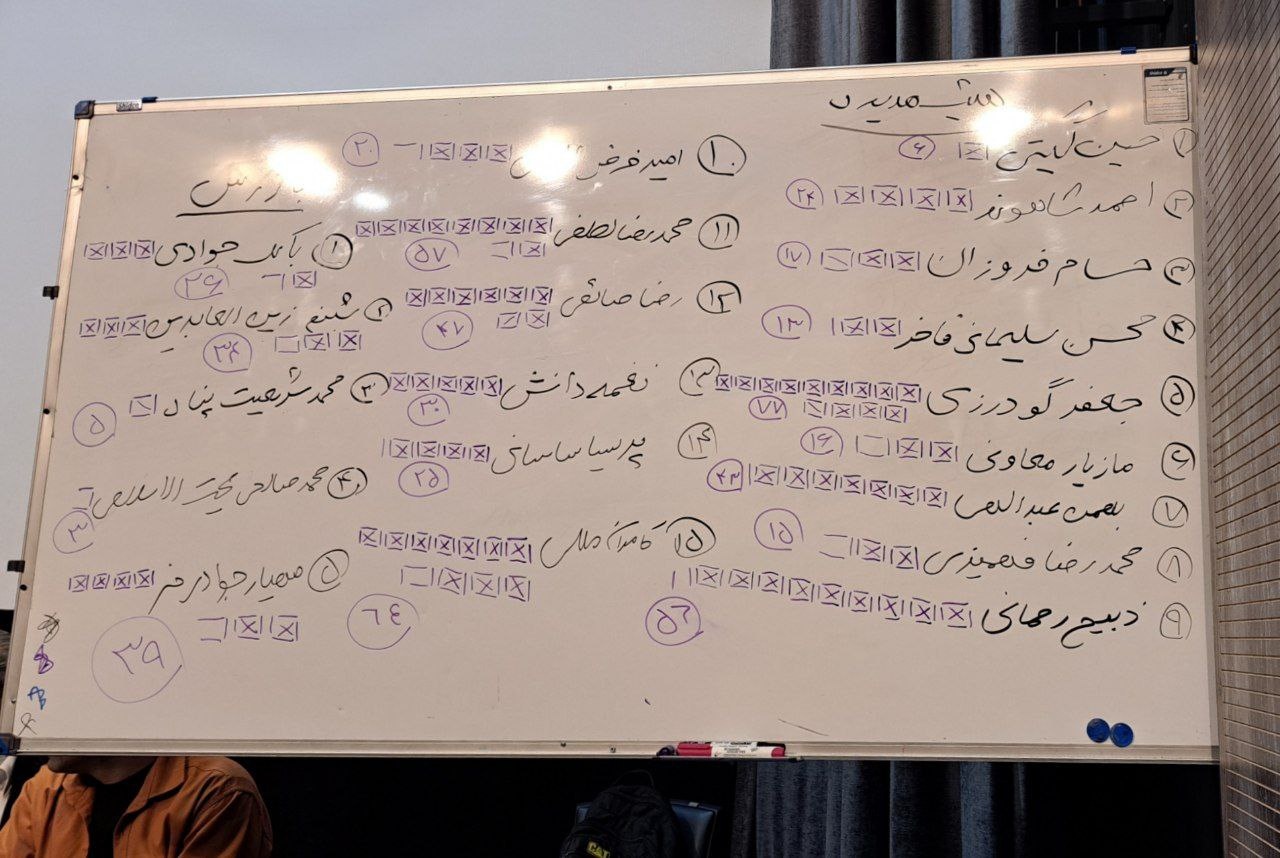 هیئت مدیره
۱ حسین گیتی ۶
۲ احمد شاهوند ۲۴
۳ حسام فروزان ۱۷
۴ محسن سلیمانی فاخر ۱۳
۵ جعفر گودرزی ۷۷
۶ مازیار معاونی ۱۶
۷ بهمن عبداللهی ۴۳
۸ محمدرضا فهمیزی ۱۵
۹ ذبیح رحمانی ۵۶
۱۰ امید فرض ۲۰
۱۱ محمدرضا لطفی ۵۷
۱۲ رضا صائمی ۴۷
۱۳ نغمه دانش ۳۰
۱۴ پرسیا ساسانی ۲۵
۱۵ ۶۴
بازرس
۱ بابک جوادی ۲۹
۲ شبنم زین العابدین ۳۴
۳ محمد شریعت پناه ۵
۴ محمد صالحی حجت الاسلامی ۳
۵ مهیار جوادی فر ۳۹
CAT